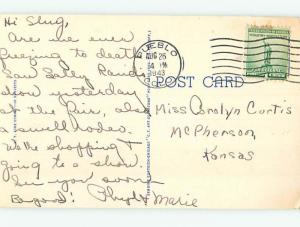 Hi Slug,
Are we ever
freezing to death
Saw Sally Rand
down yesterday
at the Fair, also
a swell rodeo.
We're shopping &
going to a show
See you soon
Phyl & Marie
PUEBLO
AUG 26
4 PM
1943
POST CARD
Miss Carolyn Curtis
McPherson
Kansas